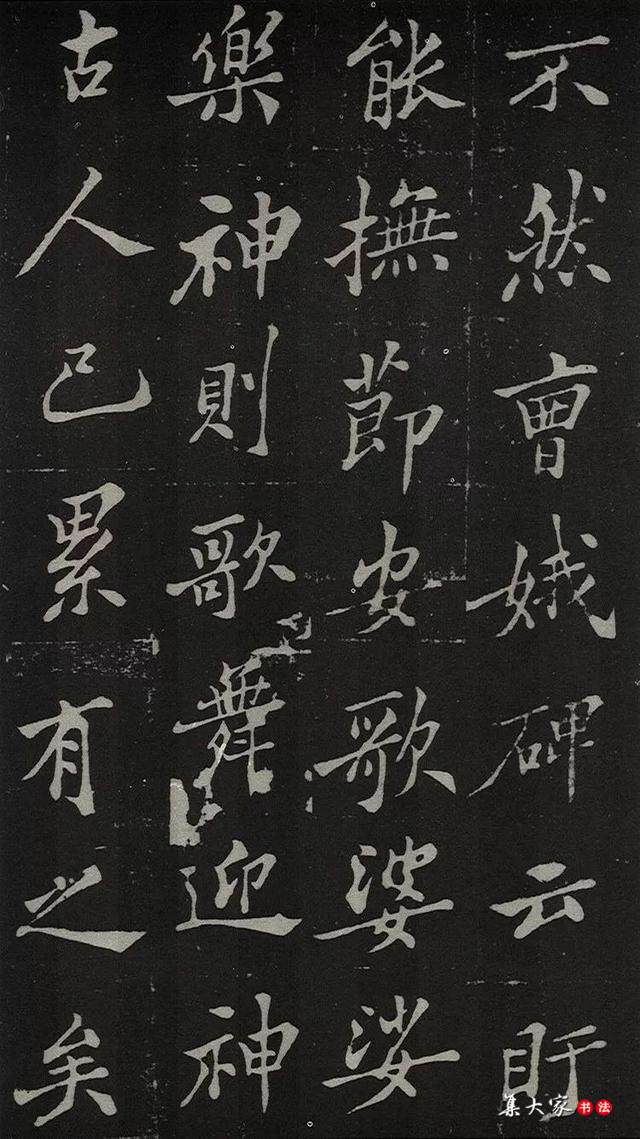 不然曹娥碑云盱
能撫節安歌婆娑
樂神則歌舞迎神
古人已累有之矣
集大家书法